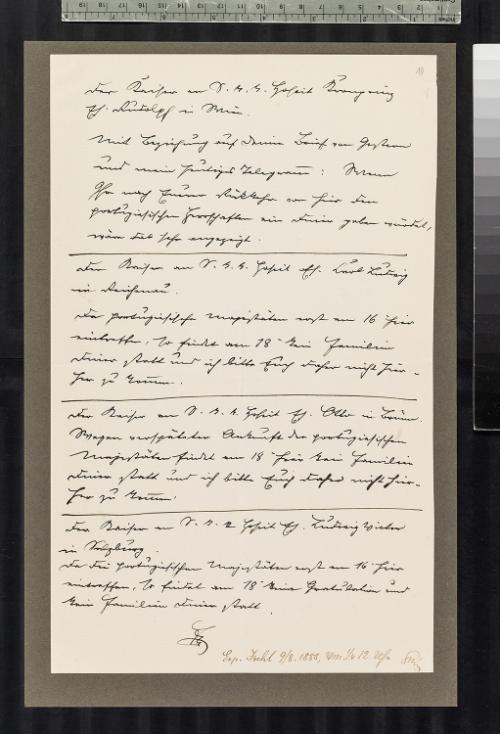 Der Kaiser an S. k. k. Hoheit Kronprinz
Eh. Rudolf in Wien.
Mit Beziehung auf Deinen Brief von Gestern
und mein heutiges Telegramm: Wenn
Ihr nach Eurer Rückkehr von hier den
portugiesischen Herrschaften ein Diner geben würdet,
wäre das sehr angezeigt.
Der Kaiser an S. k. k. Hoheit Eh. Carl Ludwig
in Reichenau.
Da portugiesische Majestäten erst am 16t hier
eintreffen, so findet am 18t kein Familien
Diner statt und ich bitte Euch daher nicht hier-
her zu kommen.
Der Kaiser an S. k. k. Hoheit Eh. Otto in Brünn.
Wegen verspäteter Ankunft der portugiesischen
Majestäten findet am 18t hier kein Familien
Diner statt und ich bitte Euch daher nicht hier-
her zu kommen.
Der Kaiser an S. k. k. Hoheit Eh. Ludwig Victor
in Salzburg.
Da die portugiesischen Majestäten erst am 16t hier
eintreffen, so findet am 18t keine Gratulation und
kein Familien Diner statt.
Exp. Ischl 9/8. 1888, 12 Uhr